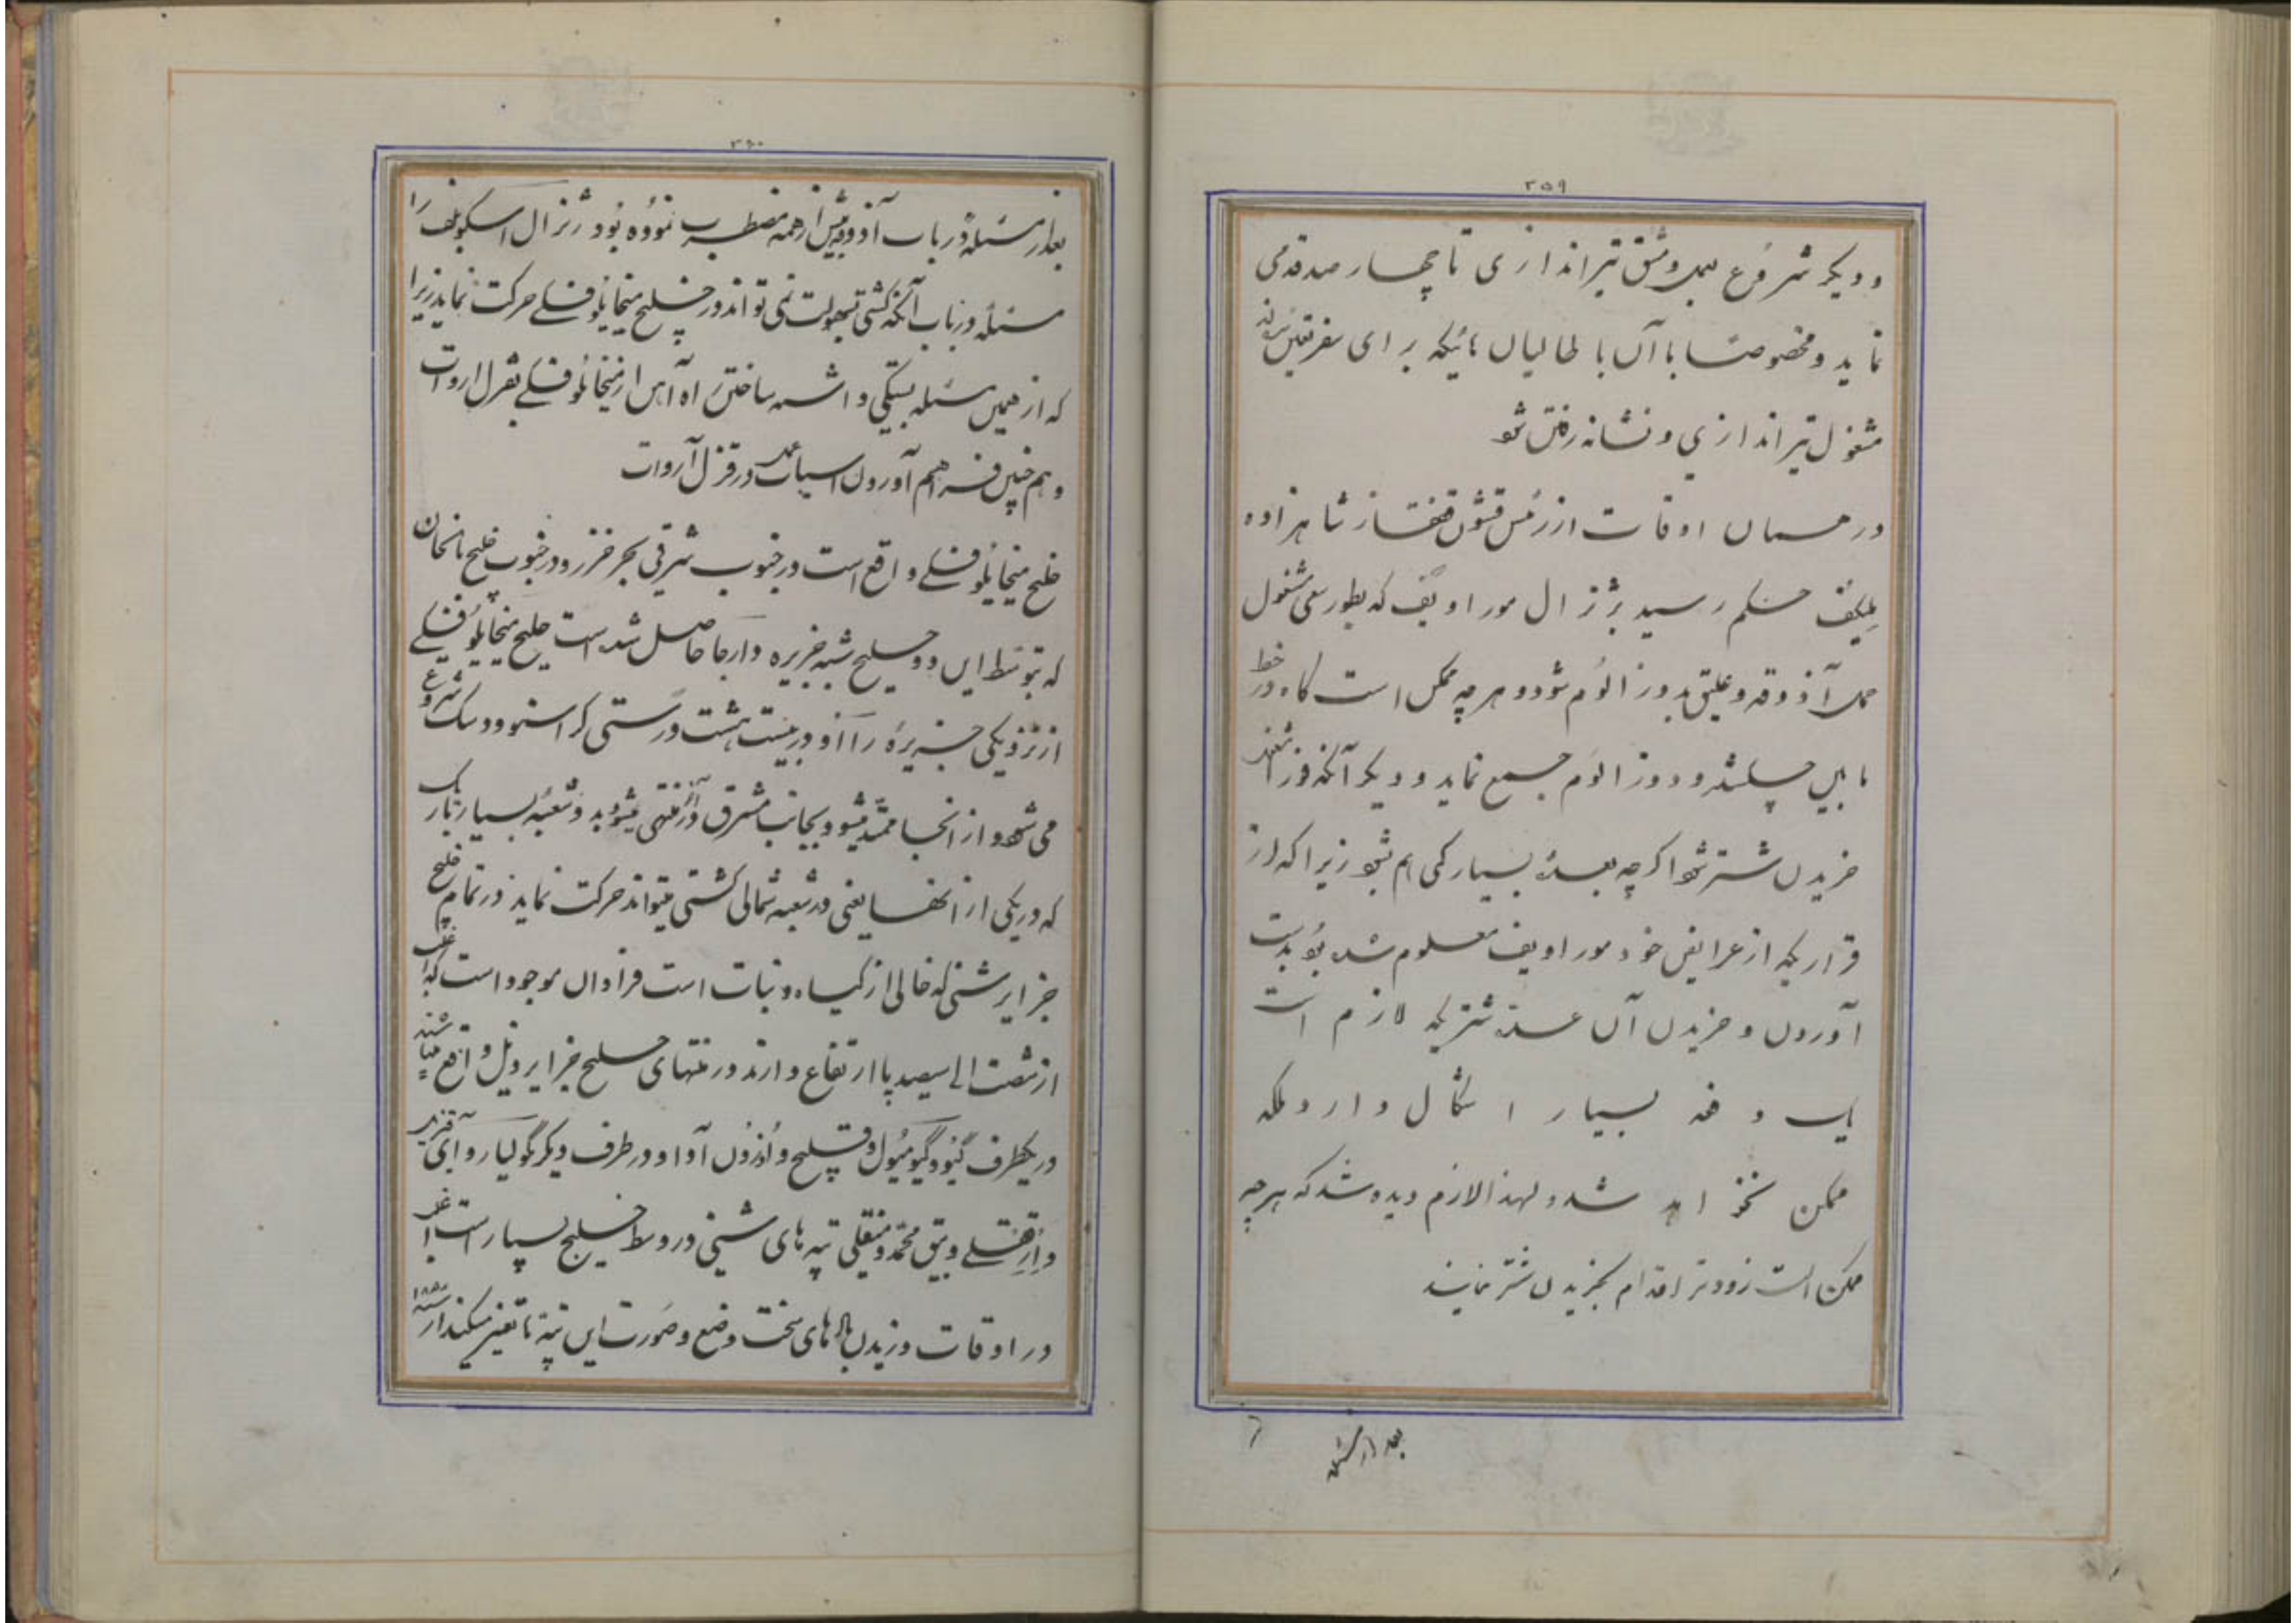 ۲۵۹
و دیگر شروع بعمل و مشق تیراندازی تا چهار صد قدمی
نماید و مخصوصاً با آن باطالیان هائیکه برای سفر تعیین شده‌اند
مشغول تیراندازی و نشانه رفتن شود
در همان اوقات از رئیس قشون قفقاز شاهزاده
ملیکف حکم رسید بژنرال موراویف که بطور سعی مشغول
حمل آذوقه و علیق بدوز الوم شود و هر چه ممکن است کاه در خط
مابین چلشلر و دوز الوم جمع نماید و دیگر آنکه فوراً مشغول
خریدن شتر شود اگرچه بعدهٔ بسیار کمی هم بشود زیرا که از
قراریکه از عرایض خود موراویف معلوم شده بود بدست
آوردن و خریدن آن عده شتریکه لازم است
یک دفعه بسیار اشکال دارد بلکه
ممکن نخواهد شد و لهذا لازم دیده شد که هر چه
ممکن است زودتر اقدام بخریدن شتر نمایند
بعد از مسئله
۲۶۰
بعد از مسئله در باب آذوقه بیش از همه مضطرب نموده بود ژنرال اسکوبلف را
مسئله در باب آنکه کشتی بسهولت نمی تواند در خلیج میخایلوفسکی حرکت نماید زیرا
که از همین مسئله بستگی داشت ساختن راه آهن از میخایلوفسکی بقزل اروات
و هم چنین فراهم آوردن اسباب عمده در قزل آروات
خلیج میخایلوفسکی واقع است در جنوب شرقی بحر خزر و در جنوب خلیج بالخان
که بتوسط این دو خلیج شبه جزیره دارجا حاصل شده است خلیج میخایلوفسکی
از نزدیکی جزیره را آو در بیست هشت ورستی کراسنوودسک شروع
می شود و از آنجا ممتد میشود بجانب مشرق و آخر منتهی میشود بدو شعبه بسیار باریک
که در یکی از آنها یعنی در شعبه شمالی کشتی میتواند حرکت نماید در تمام خلیج
جزایر شنی که خالی از گیاه و نبات است فراوان موجود است که اغلب
از شصت الی سیصد پا ارتفاع دارند در منتهای خلیج جزایر ذیل واقع میباشند
در یکطرف گیوگ میول و قلیچ و اوزون آدا و در طرف دیگر گولیار و آی
و تپه های شنی در وسط خلیج بسیار است اغلب
در اوقات وزیدن بادهای سخت وضع و صورت این تپه تا تغییر میکند از سنه ۱۸۸۰